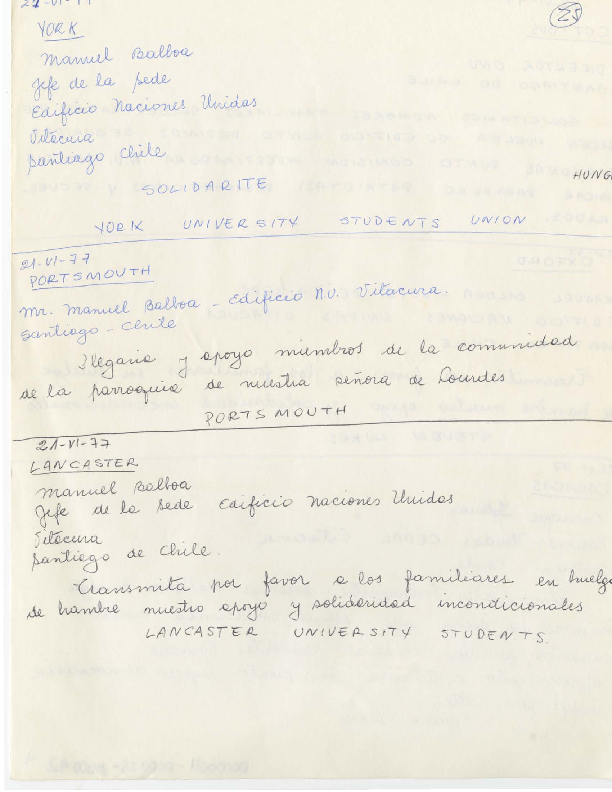 21-VI-77
25
YORK
Manuel Balboa
Jefe de la Sede
Edificio Naciones Unidas
Vitacura
Santiago Chile
HUNG
SOLIDARITE
YORK UNIVERSITY STUDENTS UNION
21-VI-77
PORTSMOUTH
Mr. Manuel Balboa - Edificio N.U. Vitacura.
Santiago - Chile
Plegaria y apoyo miembros de la comunidad
de la parroquia de nuestra señora de Lourdes
PORTSMOUTH
21-VI-77
LANCASTER
Manuel Balboa
Jefe de la Sede Edificio Naciones Unidas
Vitacura
Santiago de Chile.
Transmita por favor a los familiares en huelga
de hambre nuestro apoyo y solidaridad incondicionales
LANCASTER UNIVERSITY STUDENTS.